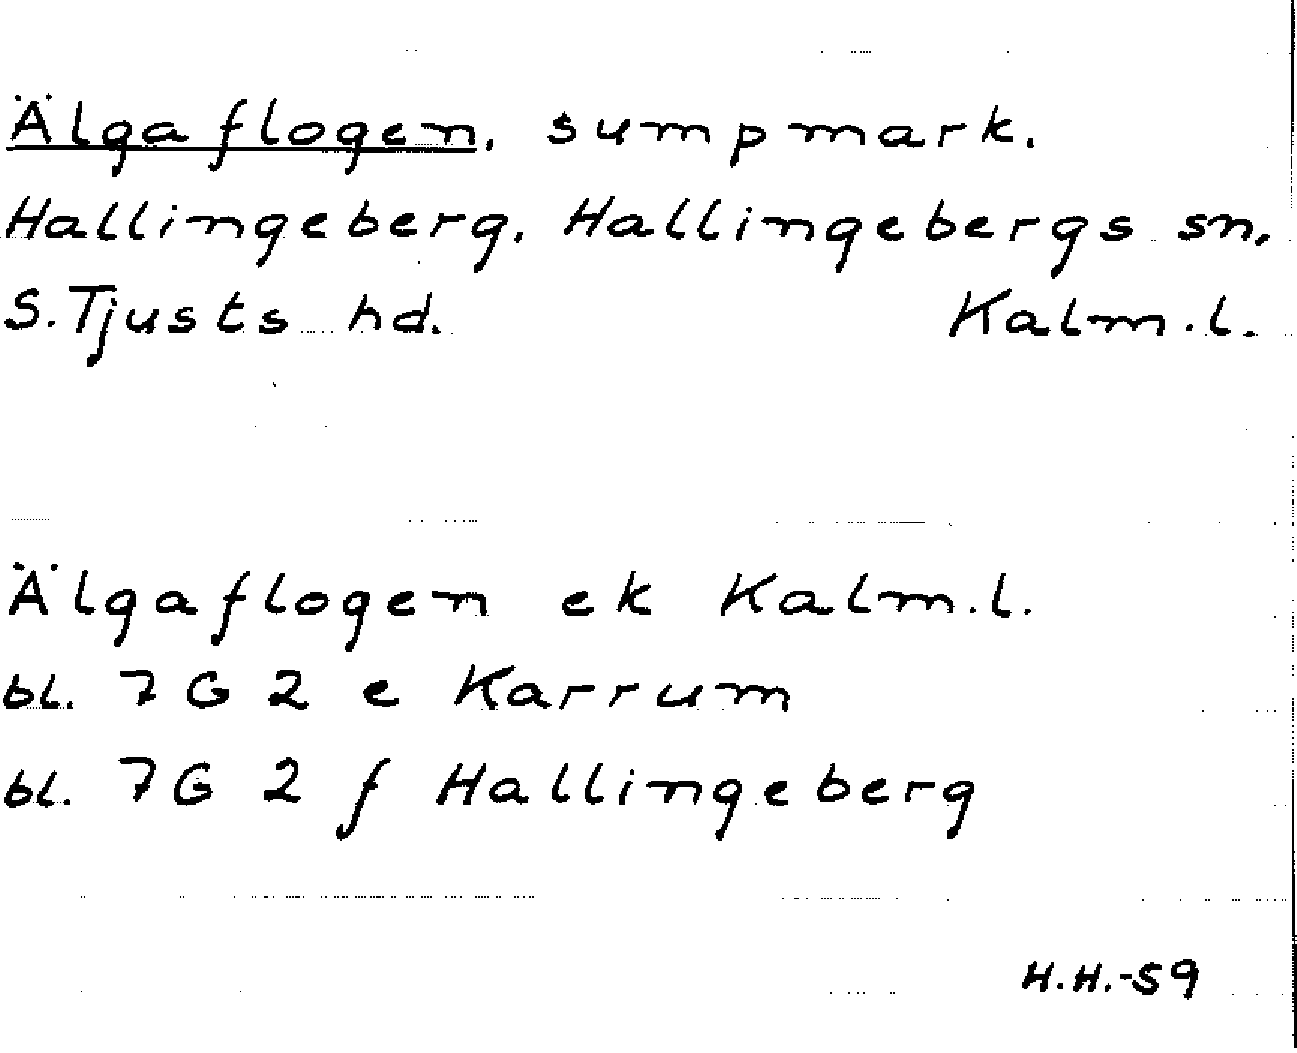 Älgaflogen, sumpmark.
Hallingeberg, Hallingebergs sn,
S. Tjusts hd. Kalm.l.
Älgaflogen ek Kalm.l.
bl. 7 G 2 e Karrum
bl. 7 G 2 f Hallingeberg
H.H.-59